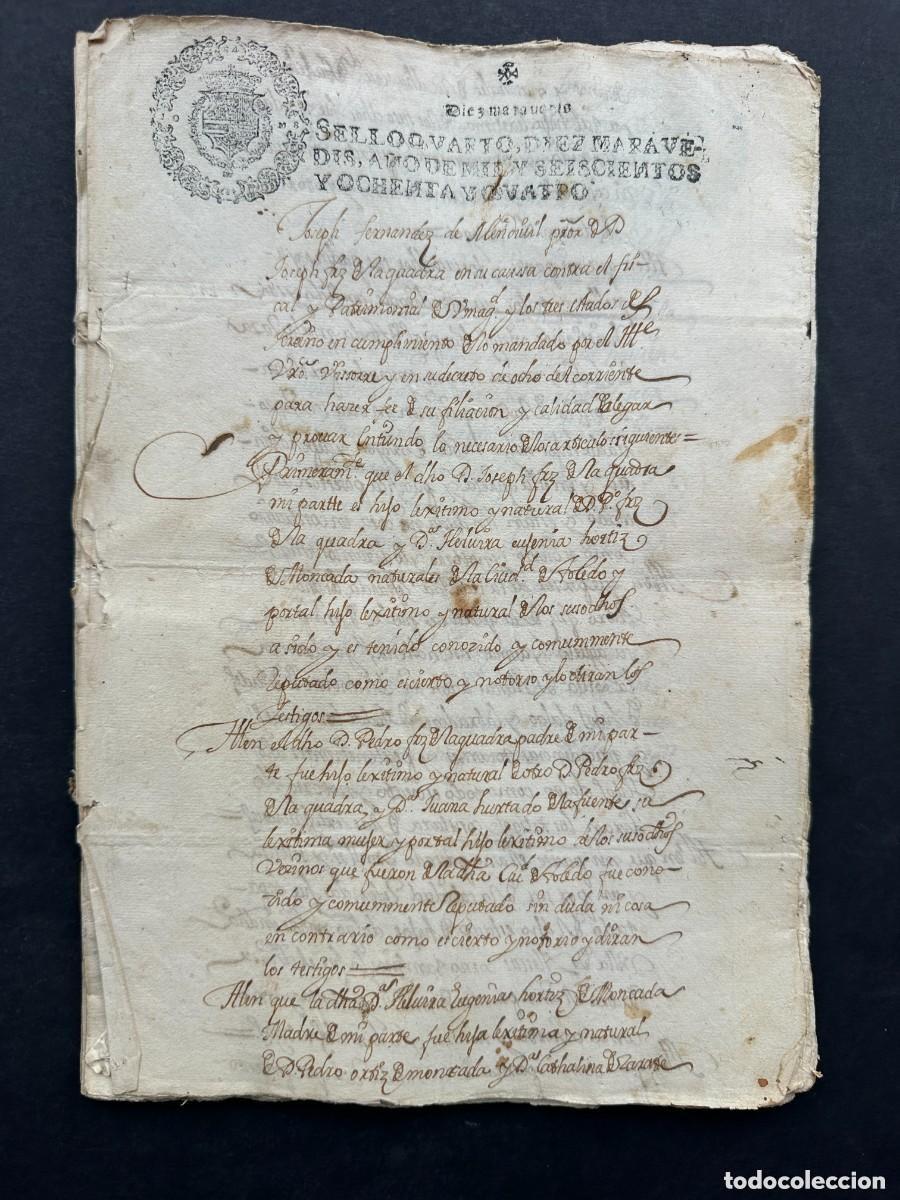 Diez maravedis
SELLO QVARTO, DIEZ MARAVE-
DIS, AÑO DE MIL Y SEISCIENTOS
Y OCHENTA Y QVATRO
Joseph fernandez de Mendivil pror de D
Joseph frz de la quadra en su causa contra el fis
cal y Patrimonial de Su magd y los tres estados deste
Reyno en cumplimiento de lo mandado por el Ille
Vro y en su decreto de ocho del corriente
para hazer fee de su filiacion y calidad alegar
y provar lo necesario los articulos siguientes =
Primeramte que el dho D. Joseph frz de la quadra
mi partte es hijo lexitimo y natural de D Po frz
de la quadra y Da Helvira eusenia hortiz
de Moncada naturales de la Ciudd de toledo y
por tal hijo lexitimo y natural de los susodhos
a sido y es tenido conozido y comummente
Reputado como es cierto y notorio y lo diran los
testigos
Iten el dho D. Pedro frz de la quadra padre de mi par-
te fue hijo lexitimo y natural de otro D. Pedro frz
de la quadra y Da Juana hurtado de la fuente su
lexitima mujer y por tal hijo lexitimo de los susodhos
Vezinos que fueron de la dha Ciud de toledo fue cono-
zido y comummente Reputado sin duda ni cosa
en contrario como es cierto y notorio y diran
los testigos
Iten que la dha Da Helvira Eugenia hortiz de Moncada
Madre de mi parte fue hija lexitima y natural
de D Pedro ortiz de moncada y Da Cathalina de Zarate
todocoleccion